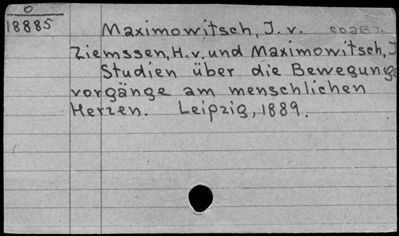 O
18885
Maximowitsch, J. v. соавт.
Ziemssen, H. v. und Maximowitsch, J
Studien über die Bewegungs
vorgänge am menschlichen
Herzen. Leipzig, 1889.